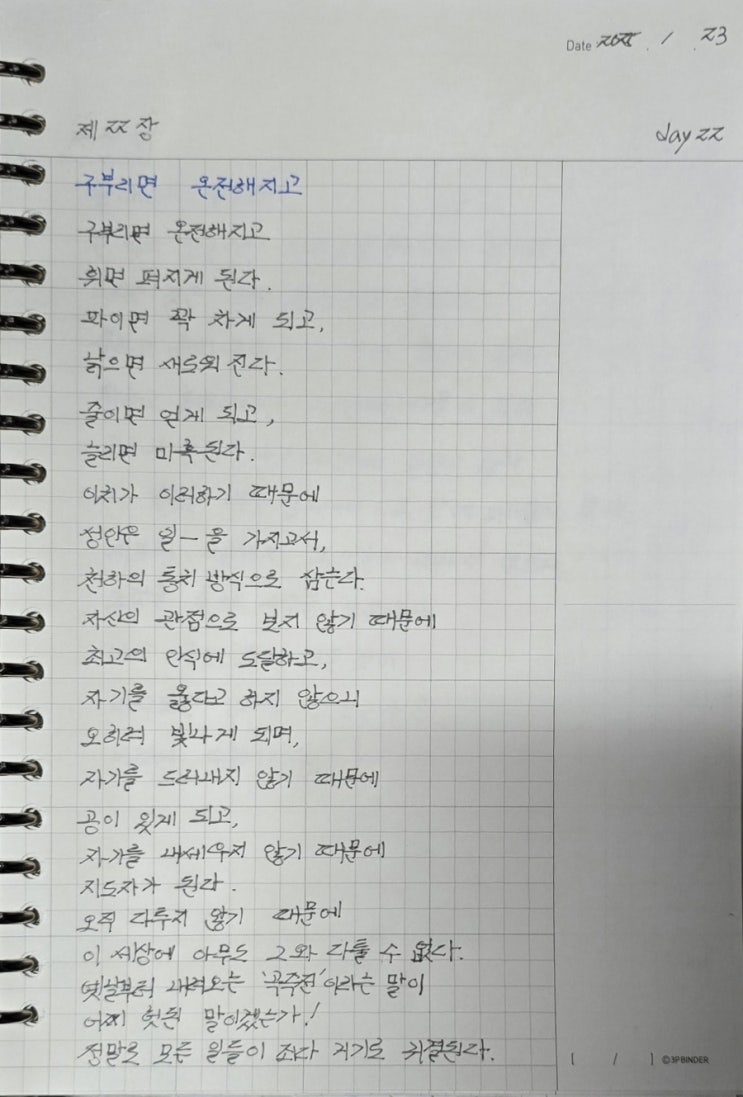 Date 2025 . 1 . 23
제 22 장
day 22
구부리면 온전해지고
구부리면 온전해지고
휘면 펴지게 된다.
파이면 꽉 차게 되고,
낡으면 새로워 진다.
줄이면 얻게 되고,
늘리면 미혹된다.
이치가 이러하기 때문에
성인은 일一을 가지고서,
천하의 통치 방식으로 삼는다.
자신의 관점으로 보지 않기 때문에
최고의 인식에 도달하고,
자기를 옳다고 하지 않으니
오히려 빛나게 되며,
자기를 드러내지 않기 때문에
공이 있게 되고,
자기를 내세우지 않기 때문에
지도자가 된다.
오직 다투지 않기 때문에
이 세상에 아무도 그와 다툴 수 없다.
옛날부터 내려오는 '곡즉전'이라는 말이
어찌 헛된 말이겠는가!
정말로 모든 일들이 죄다 거기로 귀결된다.
[ / ] ©3P BINDER